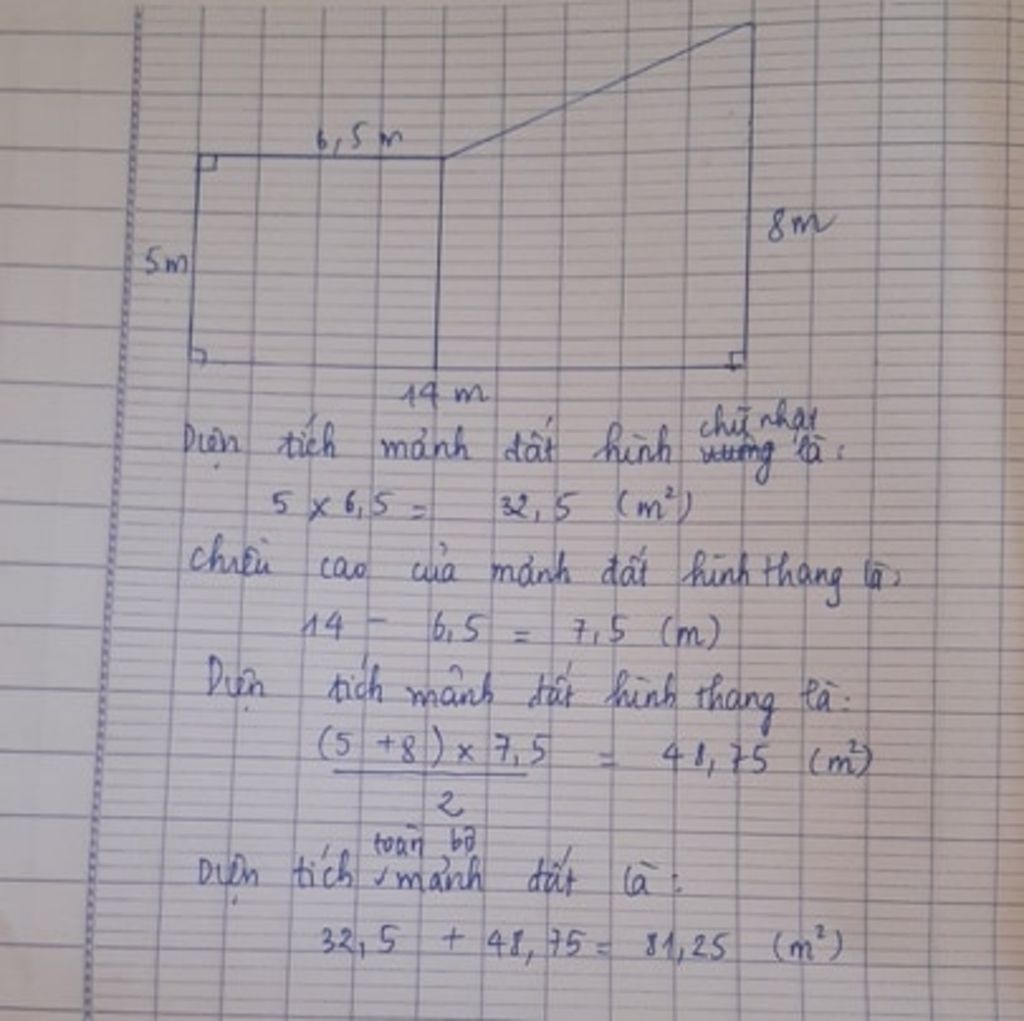 6,5 m
8m
5m
14 m
Diện tích mảnh đất hình chữ nhật là:
5 x 6,5 = 32,5 (m²)
Chiều cao của mảnh đất hình thang là:
14 - 6,5 = 7,5 (m)
Diện tích mảnh đất hình thang là:
(5 + 8) x 7,5 = 48,75 (m²)
2
Diện tích toàn bộ mảnh đất là:
32,5 + 48,75 = 81,25 (m²)